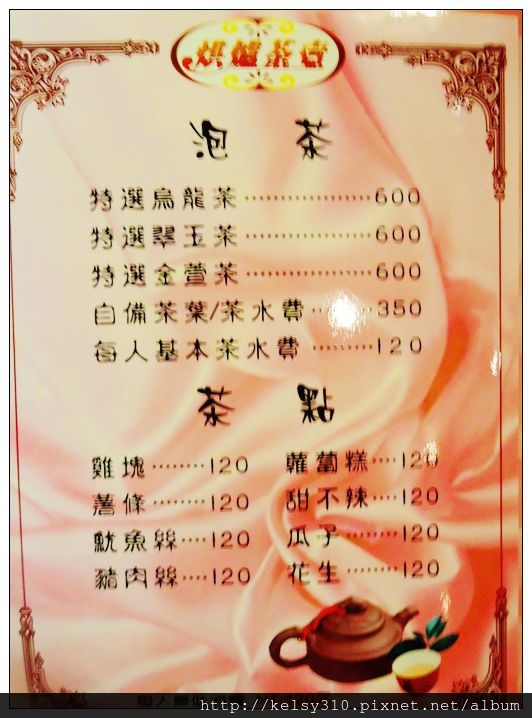 烘爐茶壺
泡 茶
特選烏龍茶··················600
特選翠玉茶··················600
特選金萱茶··················600
自備茶葉/茶水費·········350
每人基本茶水費·········120
茶 點
雞塊········120 蘿蔔糕····120
薯條········120 甜不辣····120
魷魚絲····120 瓜子········120
豬肉絲····120 花生········120
http://kelsy310.pixnet.net/album